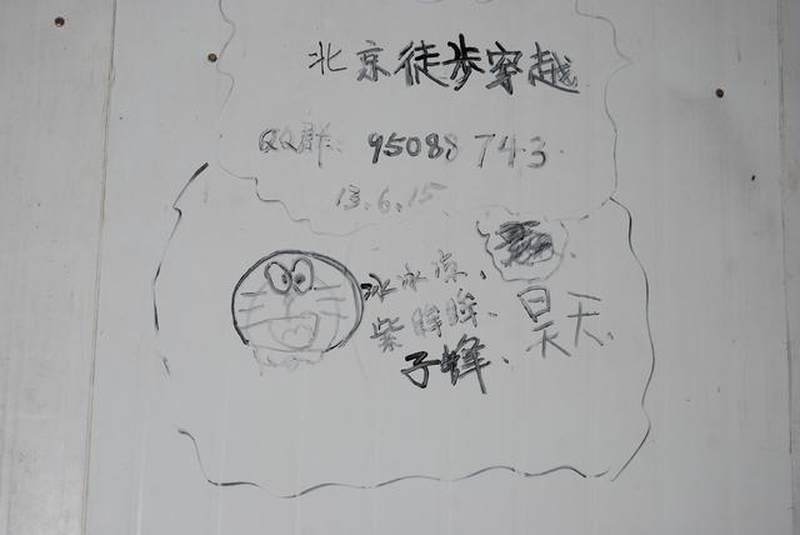 北京徒步穿越
QQ群: 95088743
13.6.15
冰冰凉、
紫眸眸、昊天、
子峰、